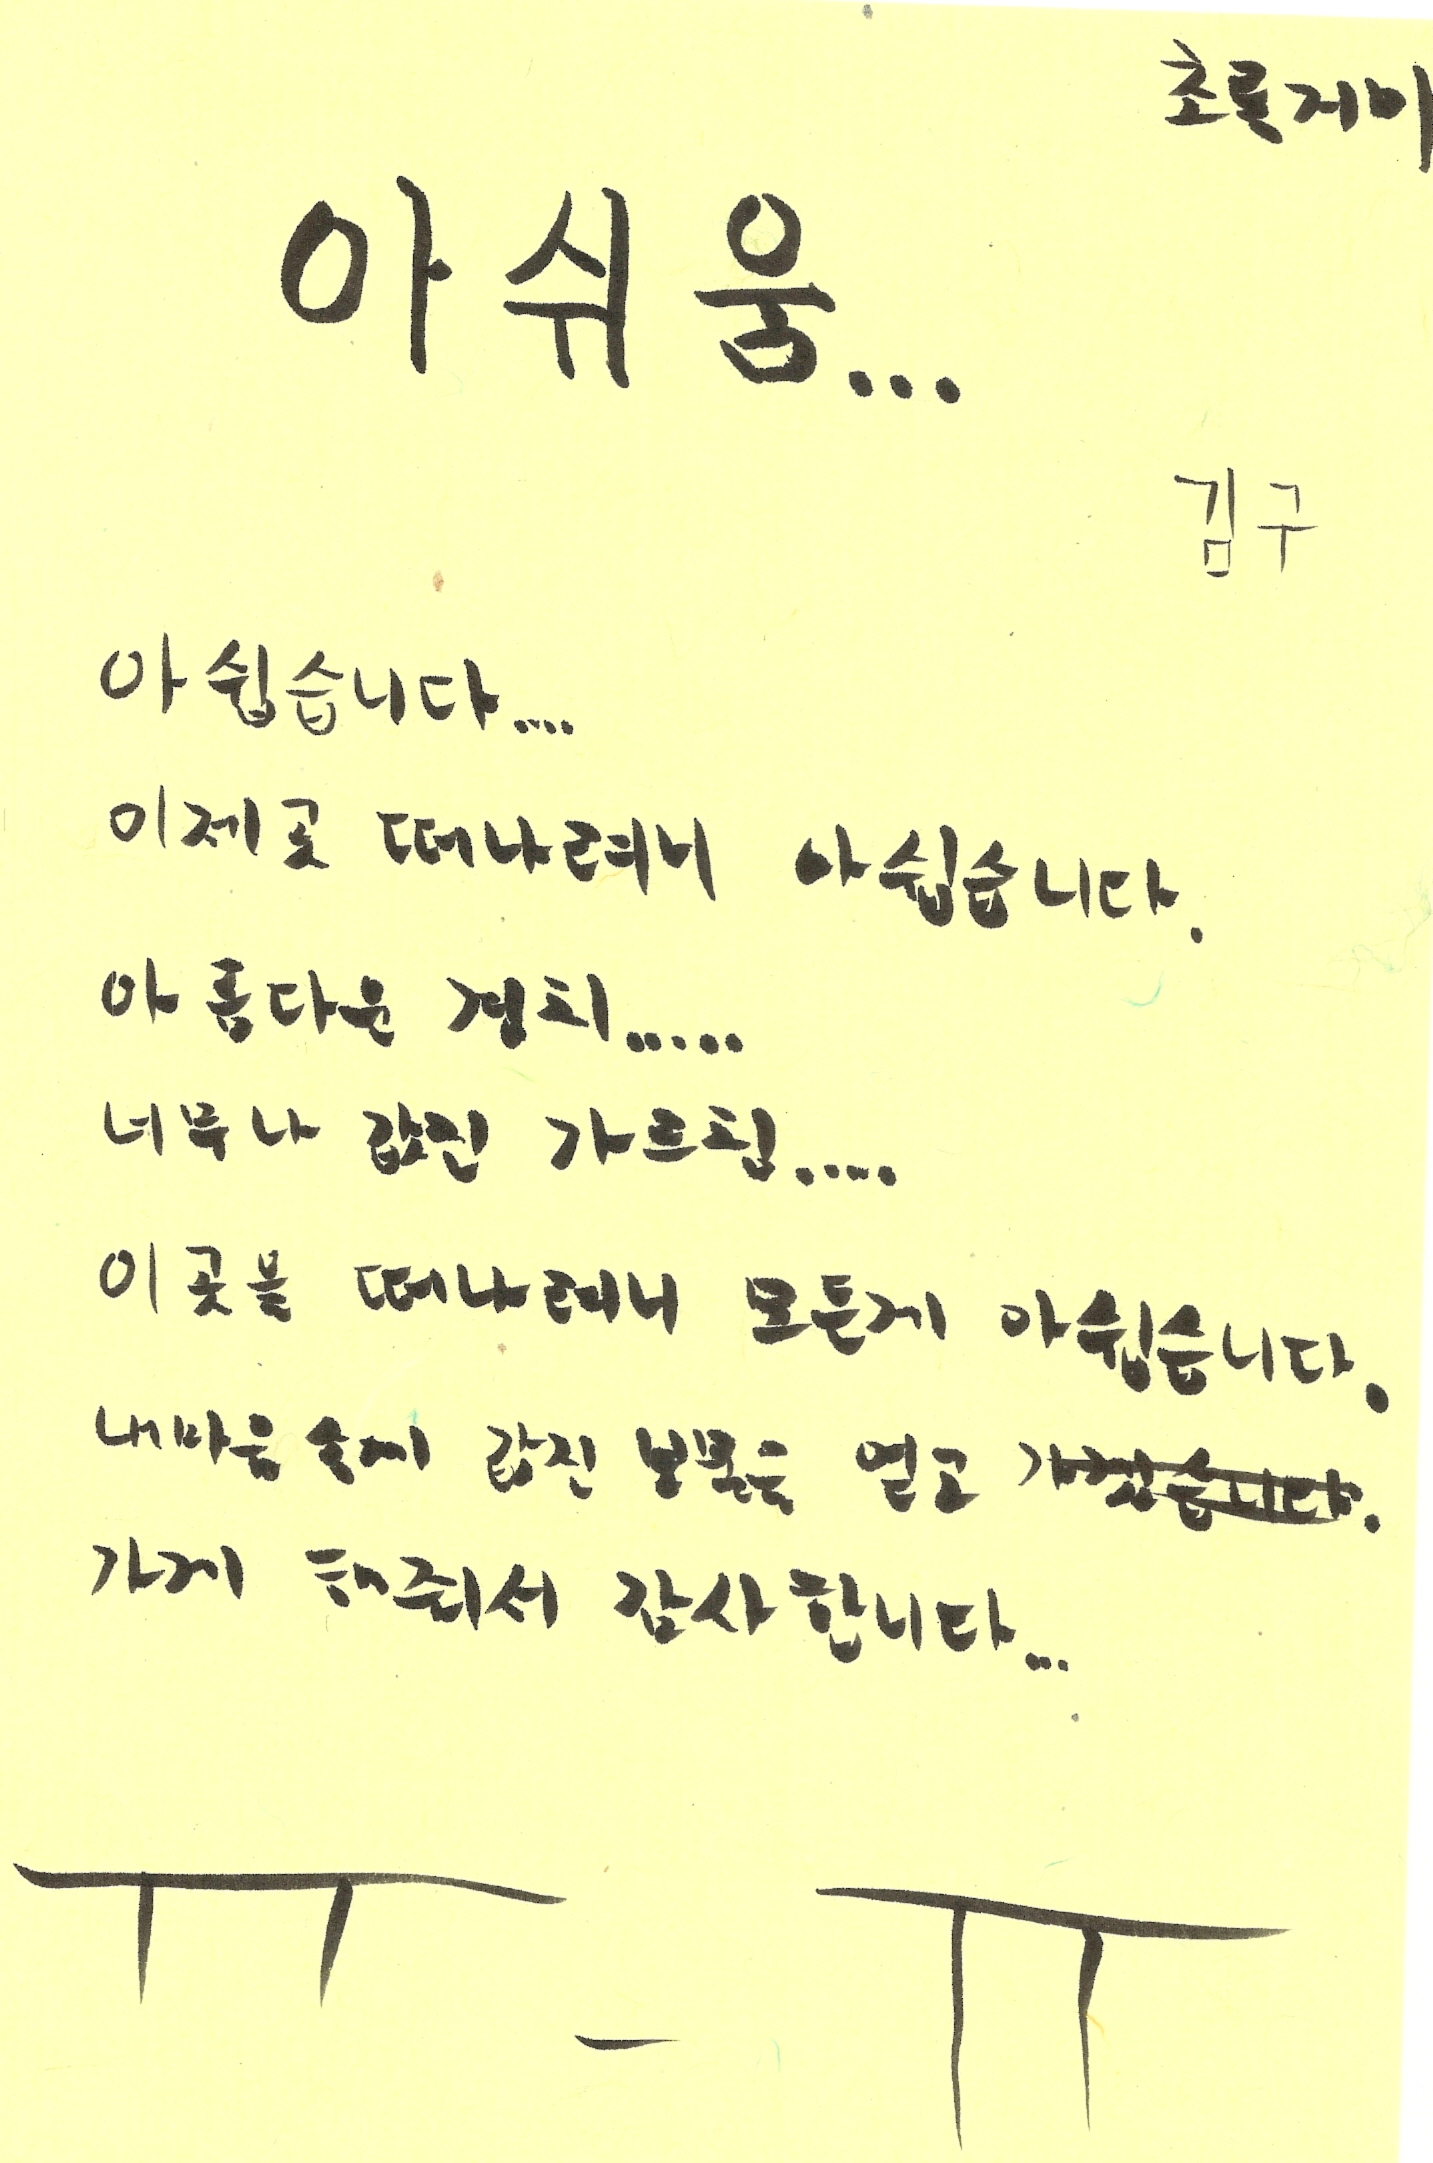 초롤거미
아쉬움...
김구
아쉽습니다....
이제곳 떠나려니 아쉽습니다.
아름다운 경치......
너무나 값진 가르침.....
이곳을 떠나려니 모든게 아쉽습니다.
내마음 속에 값진 보물을 얻고 가겠습니다.
가게 해줘서 감사합니다...
ㅠ_ㅠ